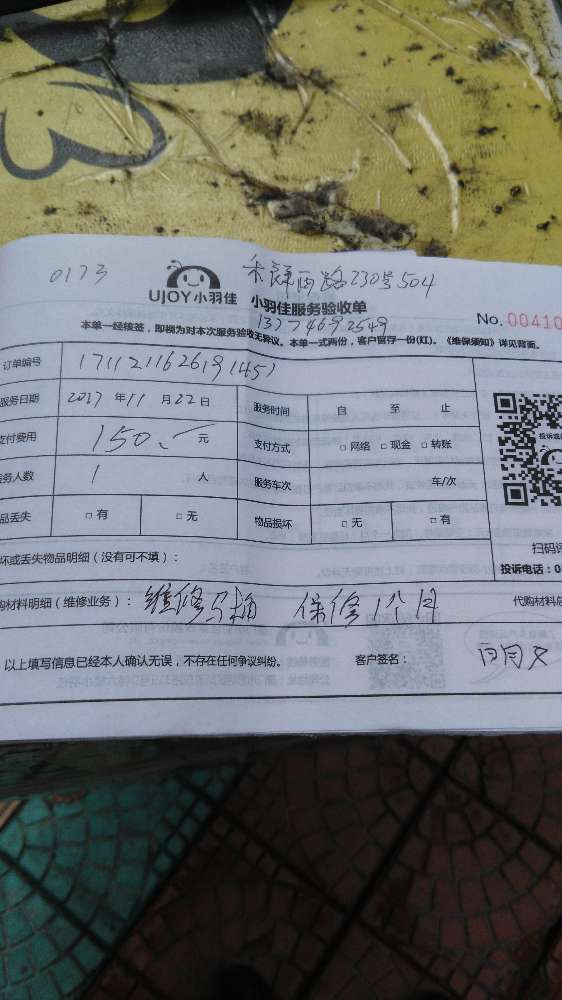 0173
路230号504
UJOY小羽佳
小羽佳服务验收单
13774692549
No. 00410
本单一经核签，即视为对本次服务验收无异议。本单一式两份，客户留存一份(红)。《维保须知》详见背面。
订单编号 1711211626191451
服务日期 2017 年 11 月 22 日 服务时间 自 至 止
支付费用 150 元 支付方式 □ 网络 □ 现金 □ 转账
务人数 1 人 服务车次 车/次
品丢失 □ 有 □ 无 物品损坏 □ 无 □ 有
坏或丢失物品明细（没有可不填）：
扫码评
投诉电话：0
购材料明细（维修业务）： 维修马桶 保修1个月 代购材料总
以上填写信息已经本人确认无误，不存在任何争议纠纷。 客户签名：